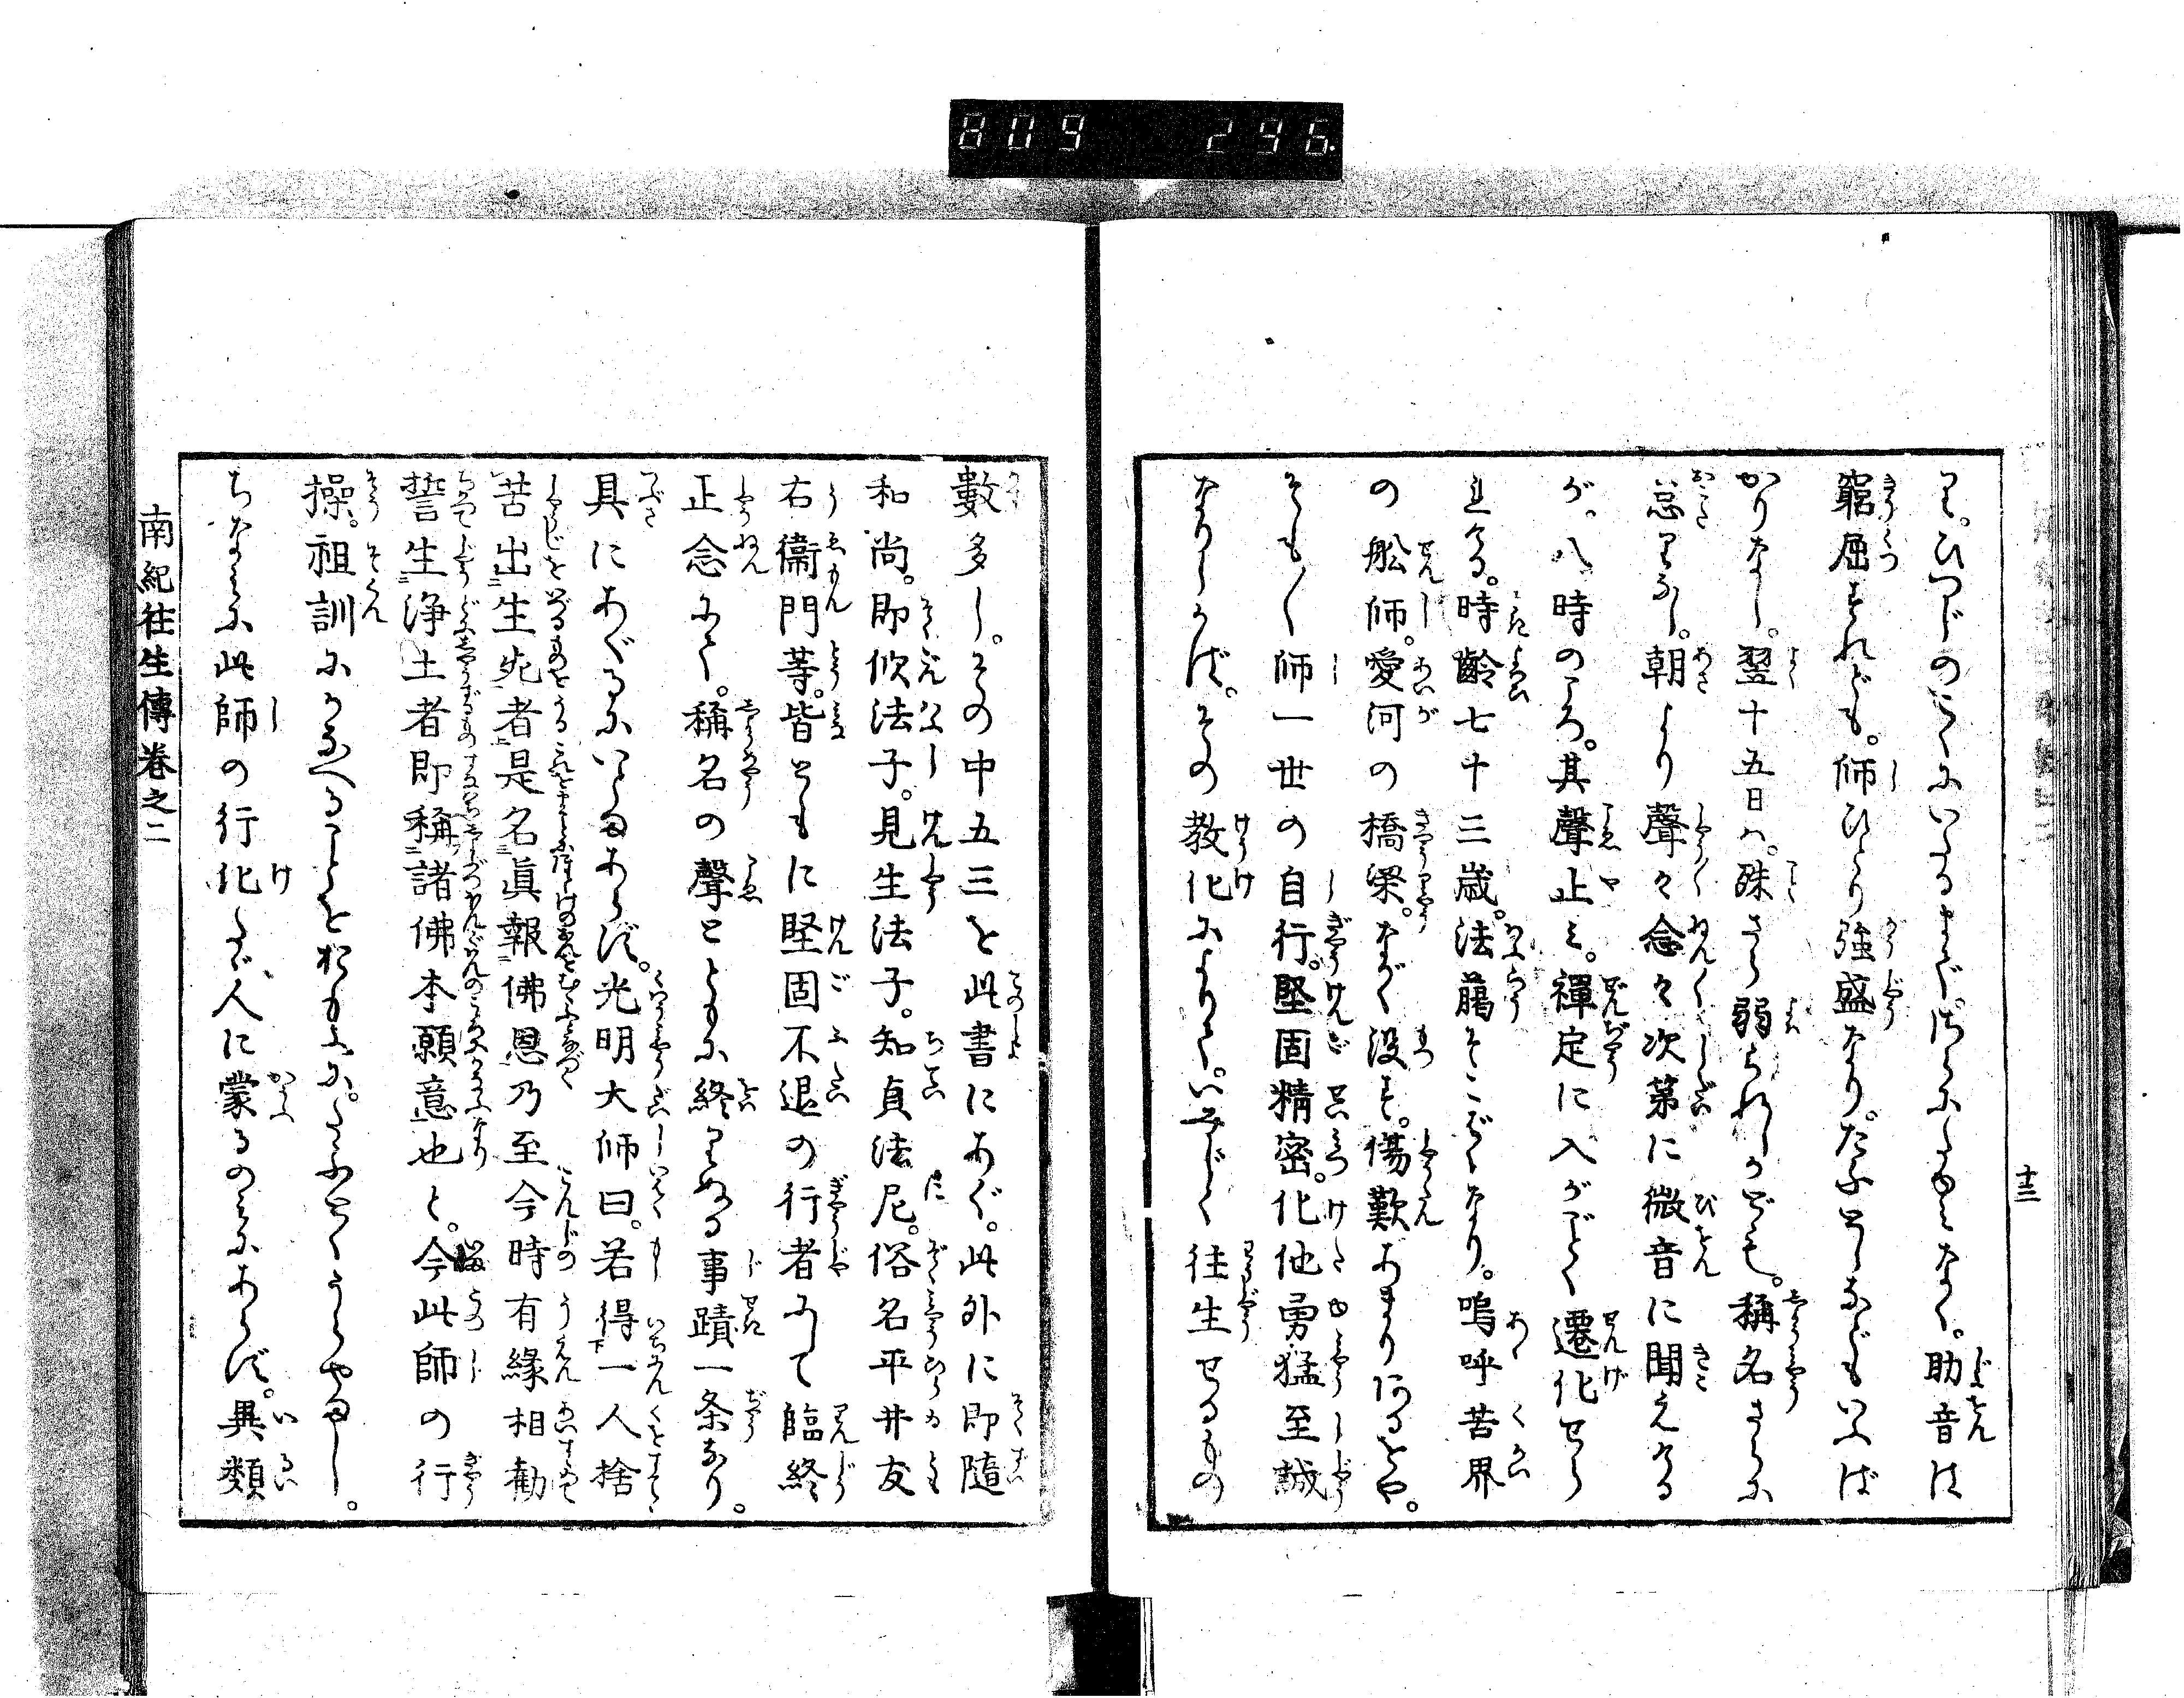 809 296.
十三
り。ひつじのこくにいたるまで。さらにたゆみなく。助音は
窮屈すれども。師ひとり強盛なり。たふとしなどもいへば
かりなし。翌十五日ハ。殊さら弱られしかども。稱名さらに
怠りなし。朝より聲々念々次第に微音に聞えける
が。八時のころ。其聲止ミ。禪定に入がごとく遷化せら
れける。時齡七十三歳。法﨟そこばくなり。嗚呼苦界
の舩師。愛河の橋梁。ながく没す。傷歎あまりあるをや。
そも〳〵師一世の自行。堅固精密。化他勇猛至誠
なりしかば。その教化によりて。いみじく往生せるもの
數多し。その中五三を此書にあぐ。此外に即隨
和尚。即欣法子。見生法子。知貞法尼。俗名平井友
右衞門等。皆ともに堅固不退の行者にして臨終
正念にて。稱名の聲とともに終りぬる事蹟一条あり。
具にあぐるにいとまあらず。光明大師曰。若得一人捨
苦出生死者是名眞報佛恩乃至今時有緣相勸
誓生浄土者即稱諸佛本願意也と。今此師の行
操。祖訓にかなへることをおもふに。たふとくうらやまし。
ちなみに此師の行化たゞ人に蒙るのみにあらず。異類
南紀往生傳卷之二